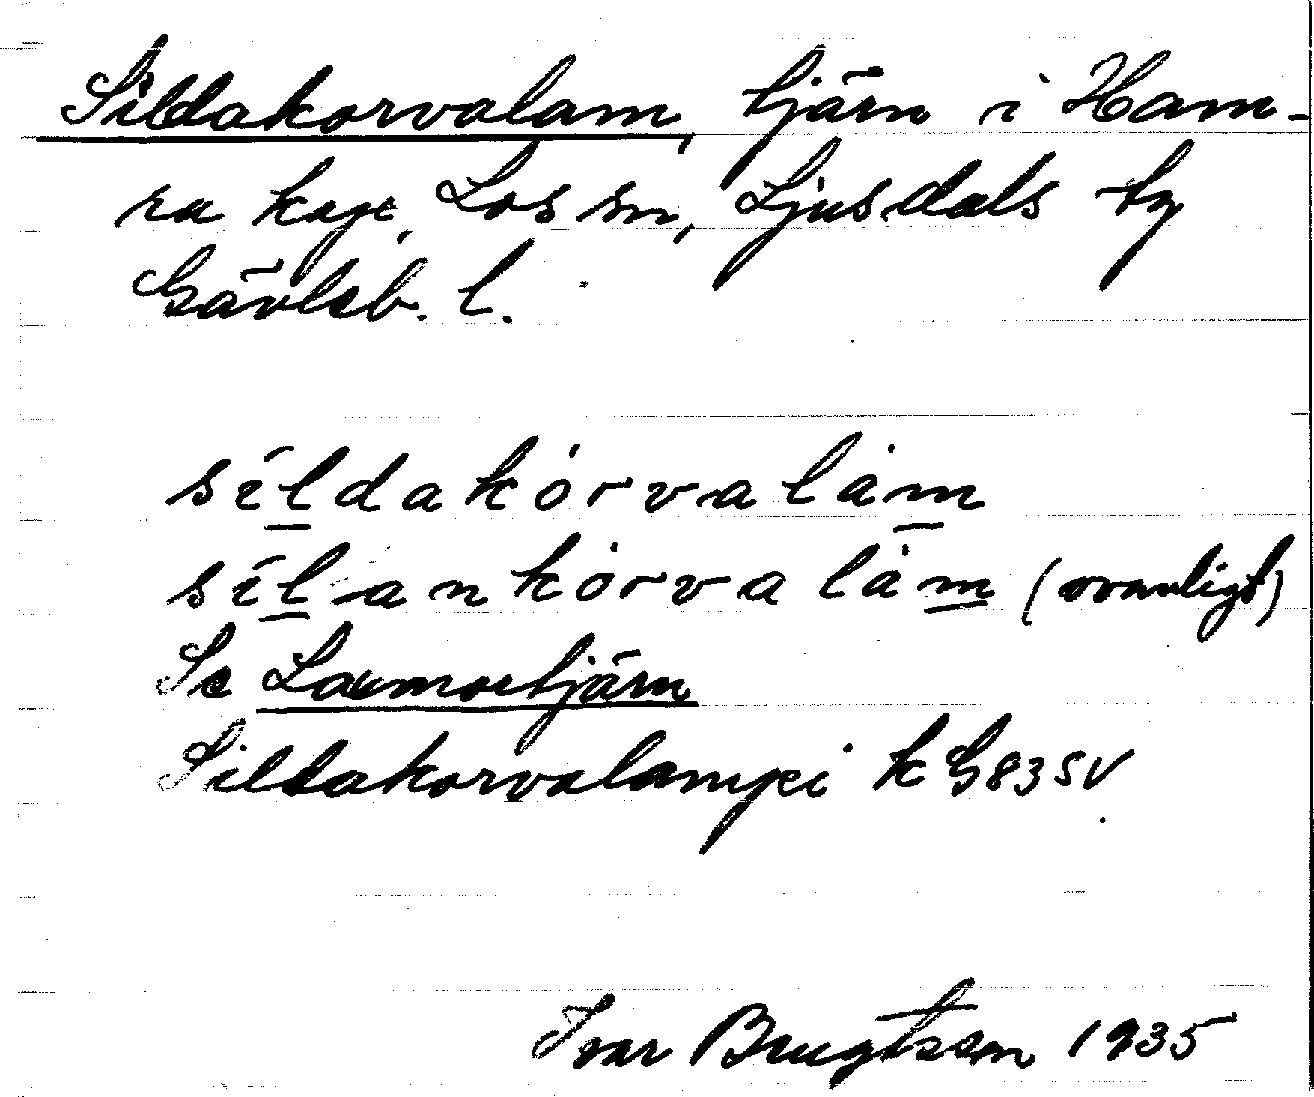 Sildakorvalam, tjärn i Ham-
ra kap., Los sn, Ljusdals tg
Gävleb. l.
síldakòrvalàm
sílankòrvalàm (ovanligt)
Se Laxmortjärn
Sildakorvalampi k G83SV.
Ivar Bengtsson 1935